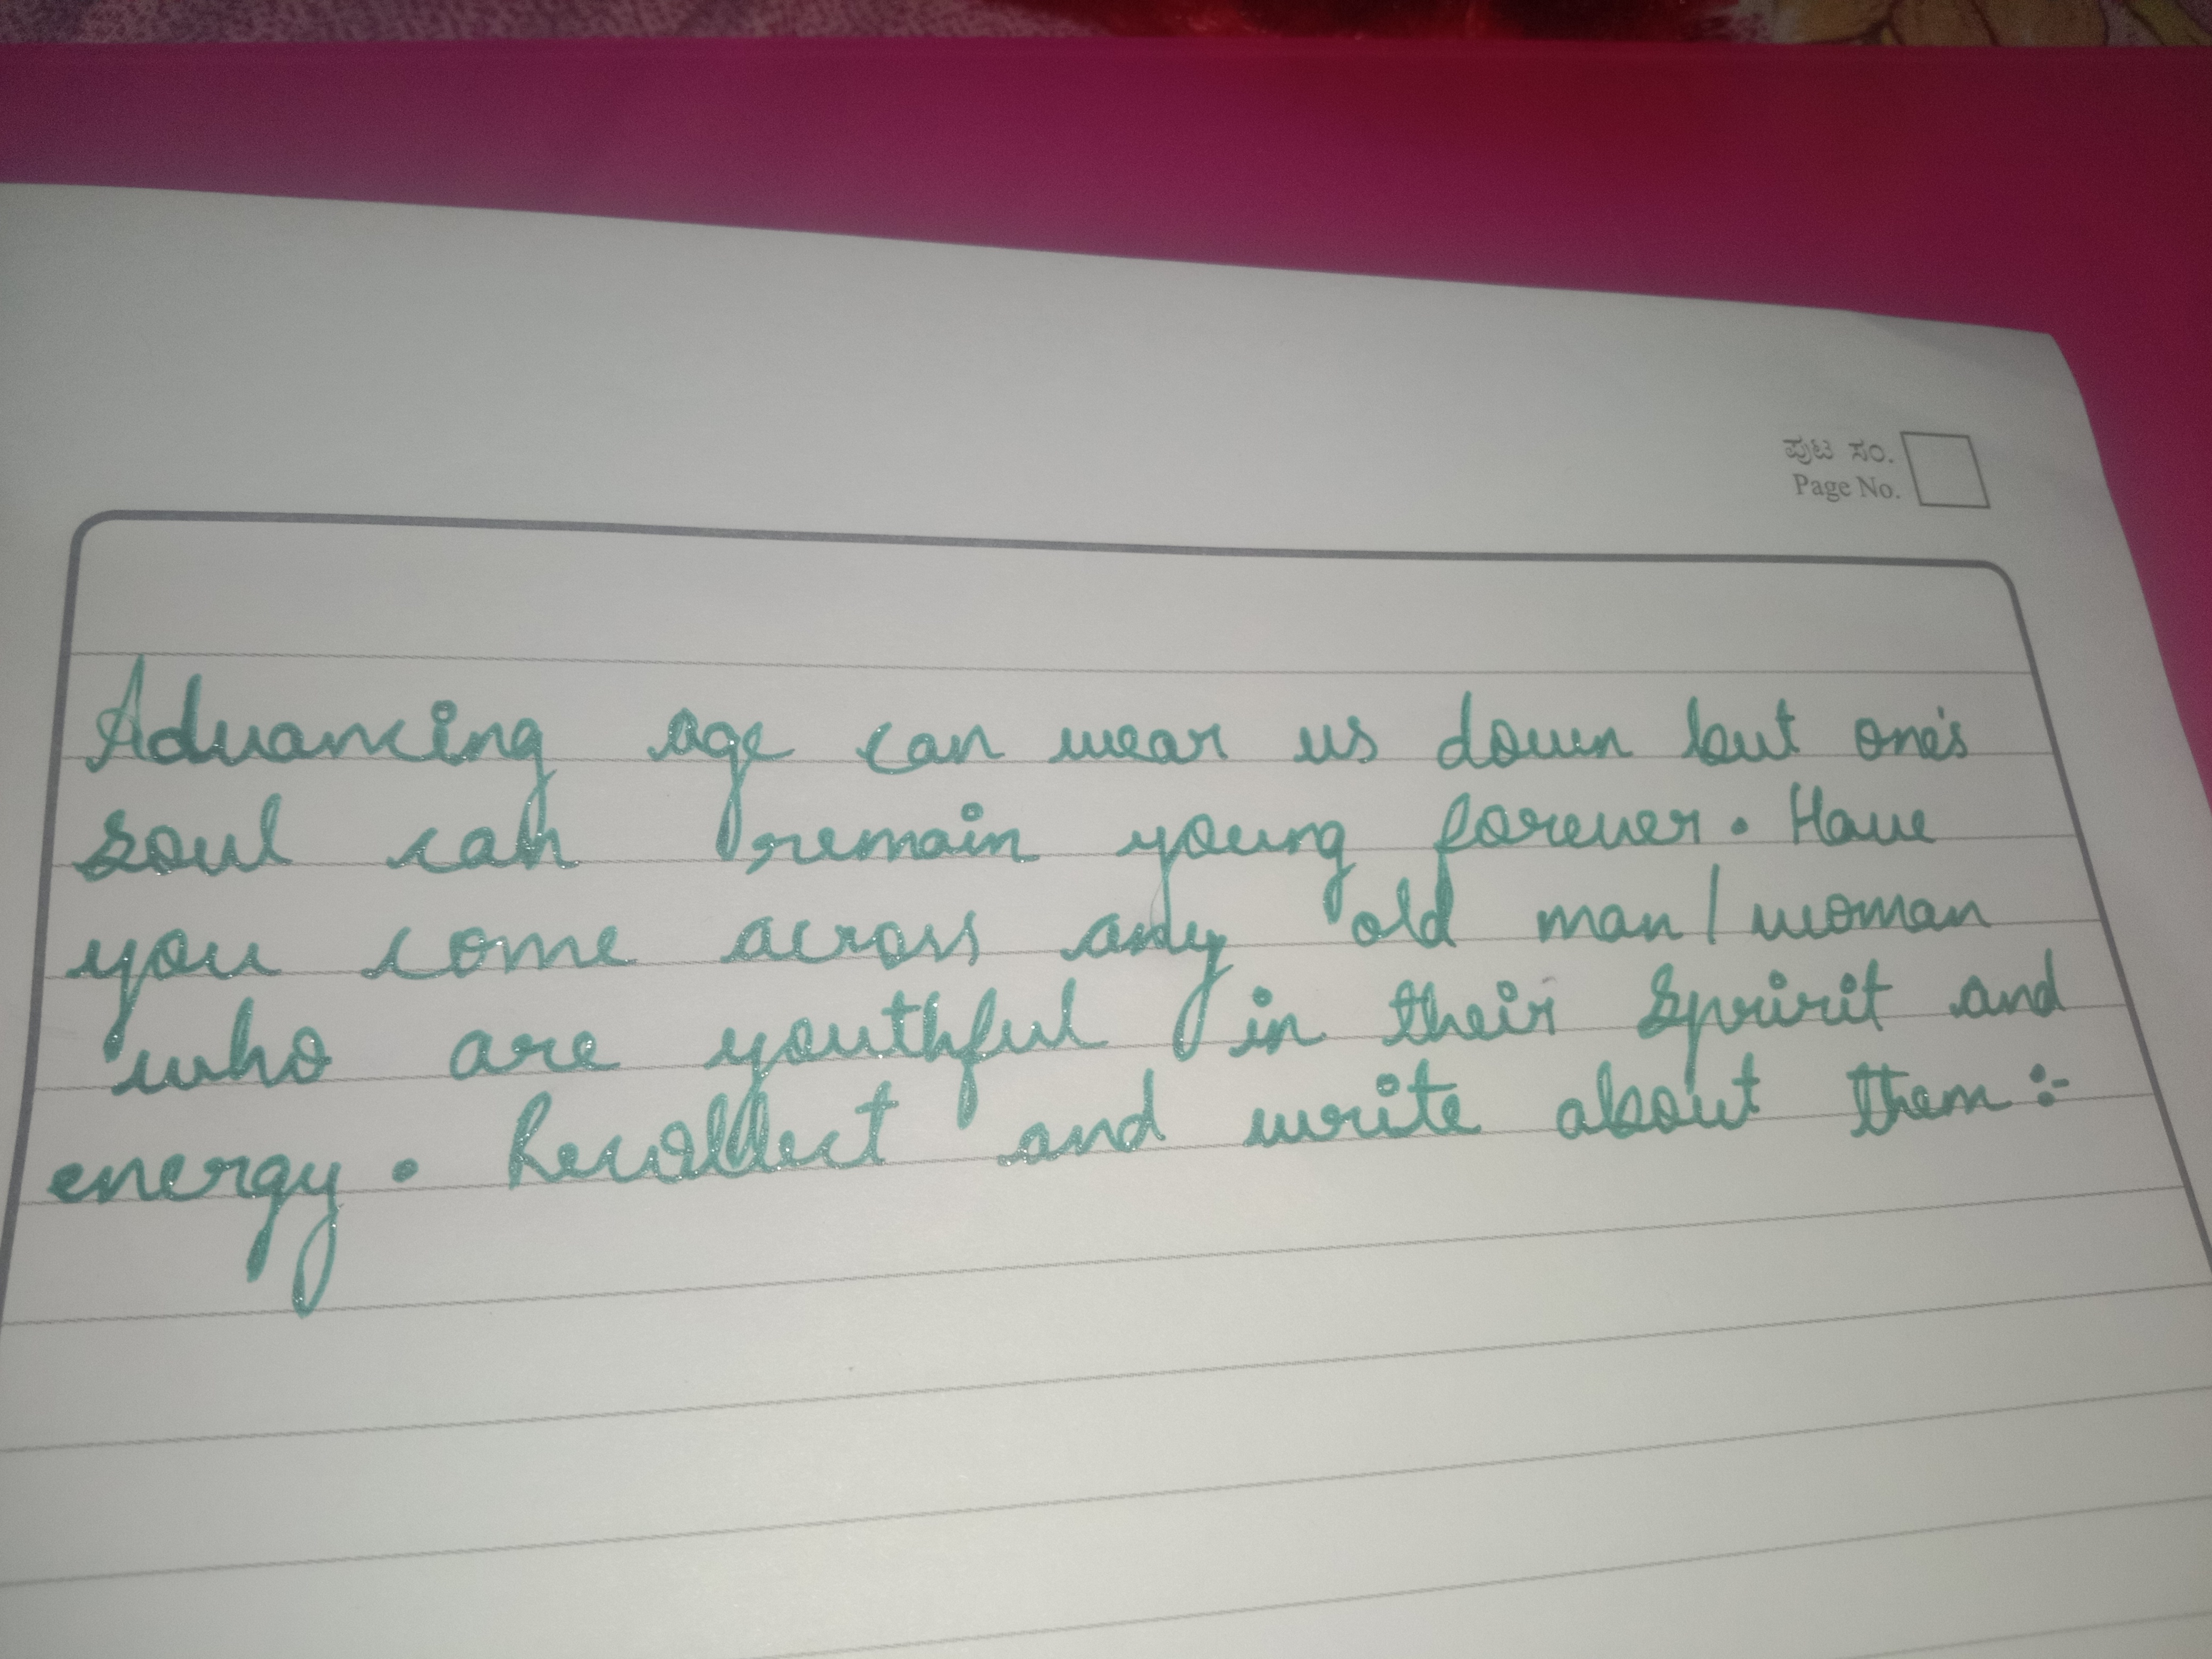 ಪುಟ ಸಂ.
Page No.
Advancing age can wear us down but one's
soul can remain young forever. Have
you come across any old man/woman
who are youthful in their spririt and
energy. Recollect and write about them:-